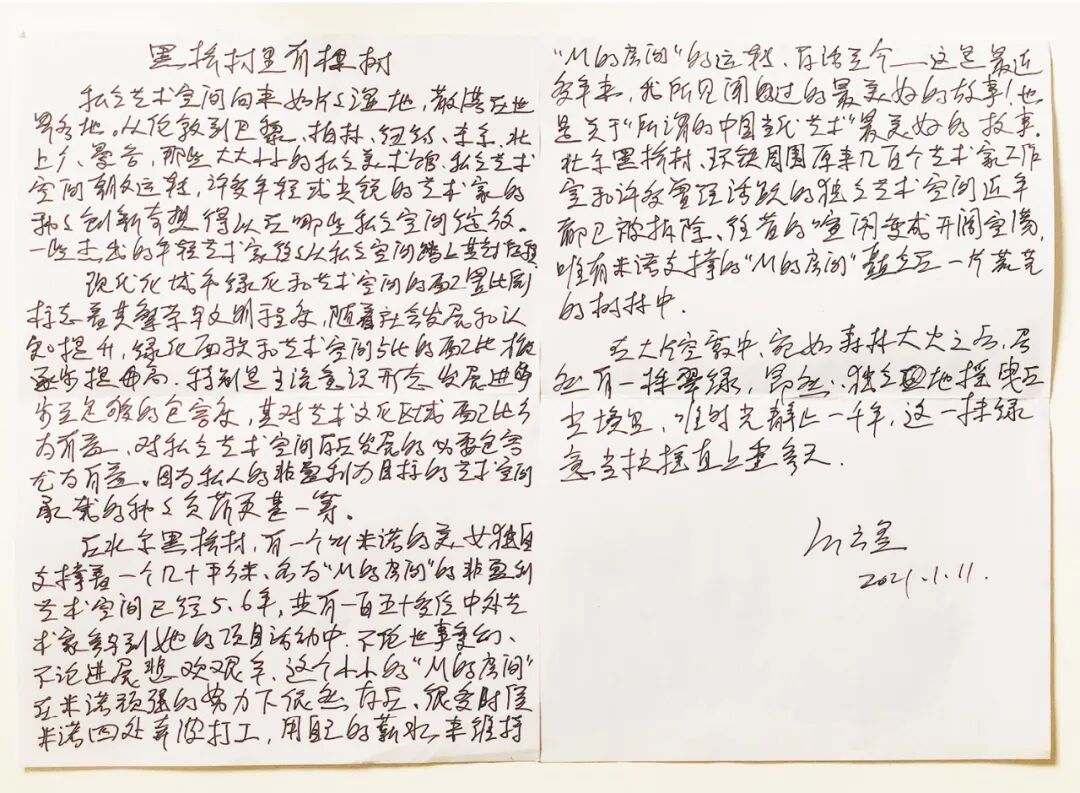 黑桥村里有棵树
私立艺术空间向来如片片湿地，散落在世
界各地。从伦敦到巴黎、柏林、纽约、东京、北
上广、曼谷，那些大大小小的私立美术馆、私立艺术
空间朝夕运转，许多年轻或尖锐的艺术家的
种种创新奇想得以在哪些私立空间绽放。
一些杰出的年轻艺术家往往从私立空间踏上其
现代化城市绿化和艺术空间的配置比例
标志着其繁荣与文明程度，随着社会发展和认
知提升，绿化面积和艺术空间占比的配比
逐步提高。特别是主流意识形态发展进
步至足够的包容度，其对艺术文化区域配比
为有益，对私立艺术空间存在发展的必要包容
尤为有益。因为私人的非盈利为目标的艺术空间
承载的种种负荷更甚一筹。
在北京黑桥村，有一个叫米诺的美女独自
支撑着一个几十平方米、名为“M的房间”的非盈利
艺术空间已经5.6年，共有一百五十多位中外艺
术家参与到她的项目活动中。不论世事变幻、
不论进展悲欢艰辛，这个小小的“M的房间”
在米诺顽强的努力下依然存在、很多时候
米诺四处奔波打工，用自己的薪水来维持
“M的房间”的运转，存活至今——这是最近
多年来，我所见闻过的最美好的故事！也
是关于“所谓的中国当代艺术”最美好的故事。
北京黑桥村、环铁周围原来几百个艺术家工作
室和许多曾经活跃的独立艺术空间近年
都已被拆除、往昔的喧闹变成开阔空荡，
唯有米诺支撑的“M的房间”矗立在一片荒芜
的树林中。
在大片空寂中，宛如森林大火之后，居
然有一抹翠绿，昂然、独立地摇曳在
尘境里，唯时光静止一千年，这一抹绿
意当扶摇直上重参天．
2021.1.11.